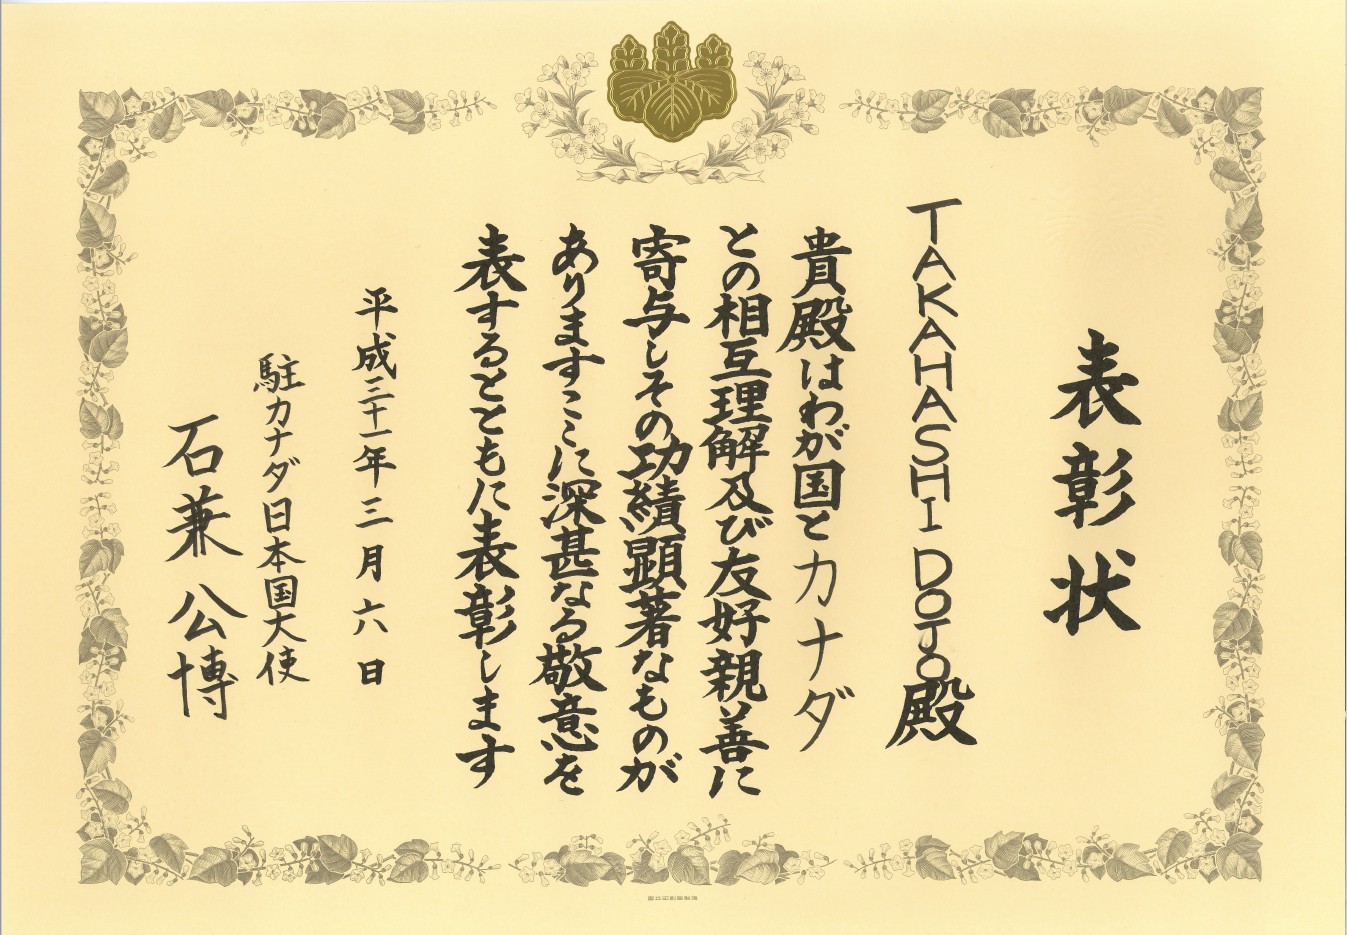 表彰状
TAKAHASHI DOJO殿
貴殿はわが国とカナダ
との相互理解及び友好親善に
寄与しその功績顕著なものが
ありますここに深甚なる敬意を
表するとともに表彰します
平成三十一年三月六日
駐カナダ日本国大使
石兼公博